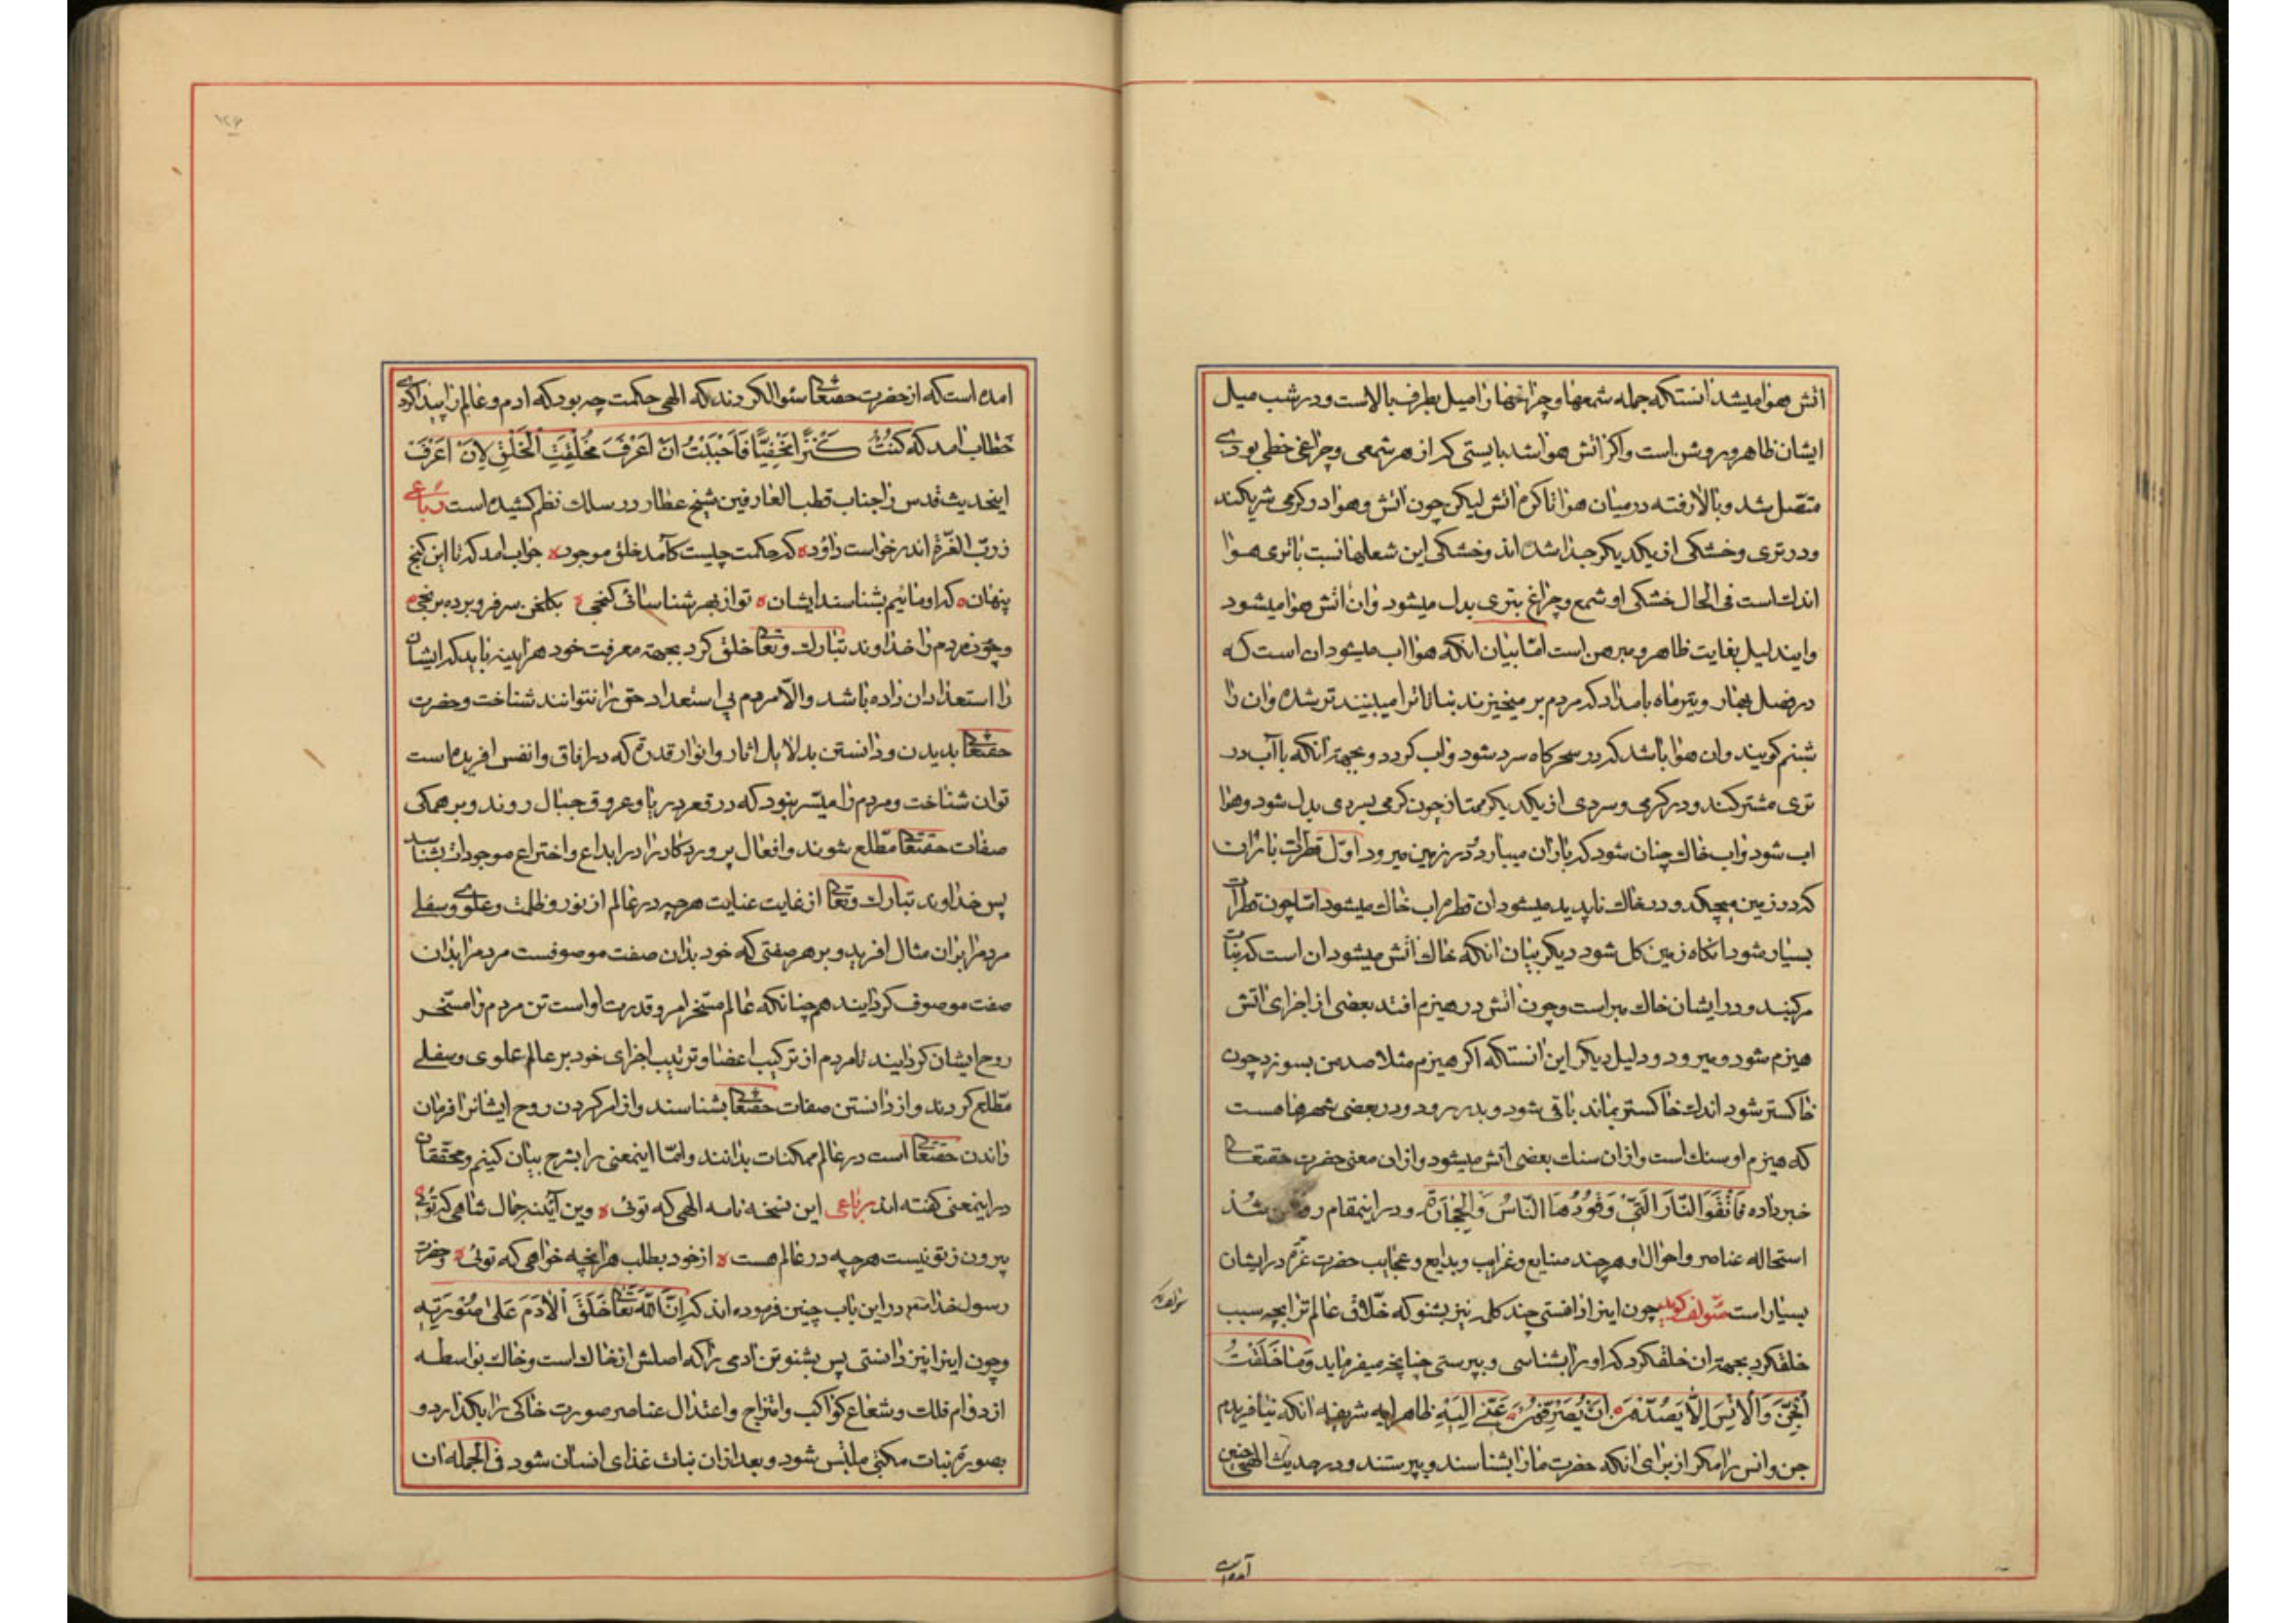 اتش هوا میشد انستکه جمله شمعها و چراغها را میل بطرف بالاست و در شب میل
ایشان ظاهر و روشن است و اکر اتش هوا نشد بایستی که از هر شمعی و چراغی خطی بودی
متصل شد و بالا رفته در میان هوا تا کرۀ اتش لیکن چون اتش و هوا در کرمی شریکند
و در تری و خشکی از یکدیکر جدا شده اند و خشکی این شعلها نسبت با تری هوا
اندك است فی الحال خشکی او شمع و چراغ بتری بدل میشود و ان اتش هوا میشود
و ایندلیل بغایت ظاهر و مبرهن است امّا بیان انکه هوا اب میشود ان است که
در فصل بهار و تیر ماه بامداد که مردم بر میخیزند نباتاترا میبینند تر شده و ان را
شبنم کویند و ان هوا باشد که در سحرکاه سرد شود و اب کردد و بجهة انکه با آب در
تری مشترکند و در کرمی و سردی از یکدیکر ممتاز چون کرمی بسردی بدل شود و هوا
اب شود و اب خاك چنان شود که باران میبارد و در زمین میرود اوّل قطرات باران
که در زمین میچکد و در خاك ناپدید میشود ان قطره اب خاك میشود امّا چون قطرات
بسیار شود انکاه زمین کل شود دیکر بیان انکه خاك اتش میشود ان است که نبات
مرکبند و در ایشان خاك میراست و چون اتش در هیزم افتد بعضی از اجزای اتش
هیزم شود و میرود و دلیل دیکر این انستکه اکر هیزم مثلا صد من بسوزد چون
خاکستر شود اندك خاکستر بماند باقی شود و بدر رود و در بعضی شهرها هست
که هیزم او سنك است و از ان سنك بعضی اتش میشود و از ان معنی حضرت حقتعالی
خبر داده فَاتَّقُوا النَّارَ الَّتِی وَقُودُهَا النَّاسُ وَالْحِجَارَةُ و در اینمقام روشن شد
استحاله عناصر و احوال او هر چند صنایع و غرایب و بدایع و عجایب حضرت عزّه در ایشان
بسیار است مؤلف کوید چون اینرا دانستی چند کلمه نیز بشنو که خلاق عالم ترا بچه سبب
خلقکرد بجهة ان خلقکرد که او را بشناسی و بپرستی چنانچه میفرماید وَمَا خَلَقْتُ
الْجِنَّ وَالْاِنْسَ اِلَّا ظاهر ایه شریفه انکه نیافریدم
جن و انس را مکر از برای انکه حضرت ما را بشناسند و بپرستند و در حدیث الهی چنین
آمده است
۱۲۶
امده است که از حضرت حقتعالی سئوال کردند که الهی حکمت چه بود که ادم و عالم را پیدا کردی
خطاب امد که کُنْتُ کَنْزًا مَخْفِیًّا فَاَحْبَبْتُ اَنْ اُعْرَفَ فَخَلَقْتُ الْخَلْقَ لِاَنْ اُعْرَفَ
اینحدیث قدس را جناب قطب العارفین شیخ عطار در سلك نظم کشیده است رباعی
ز ربّ العزّة اندر خواست داود ه که حکمت چیست کآمد خلق موجود ه جواب امد که تا این کنج
پنهان ه که او مائیم بشناسند ایشان ه تو از بهر شناسائی کنجی ه بکلخن سر فرو برده برنجی ه
و چون مردم را خداوند تبارك و تعالی خلق کرد بجهة معرفت خود هراینه باید که ایشان
را استعداد ان داده باشد و الّا مردم بی استعداد حق را نتوانند شناخت و حضرت
حقتعالی بدیدن و دانستن بدلایل اثار و انوار قدرة که در افاق و انفس افریده است
توان شناخت و مردم را میسّر نبود که در قعر دریا و عروق جبال روند و بر همکی
صفات حقتعالی مطلع شوند و افعال پروردکار را در ابداع و اختراع موجودات بشناسند
پس خداوند تبارك و تعالی از غایت عنایت هر چه در عالم از نور و ظلمت و علوی و سفلی
مردمرا بران مثال افرید و بر هر صفتی که خود بدان صفت موصوفست مردمرا بدان
صفت موصوف کردایند همچنانکه عالم مسّخر امر و قدرت او است تن مردم را مسّخر
روح ایشان کردایند تا مردم از ترکیب اعضا و ترتیب اجزای خود بر عالم علوی و سفلی
مطّلع کردند و از دانستن صفات حقتعالی بشناسند و از امر کردن روح ایشانرا فرمان
راندن حقتعالی است در عالم ممکنات بدانند و امّا اینمعنی را بشرح بیان کینم و محققان
در اینمعنی کفته اند رباعی این نسخه نامه الهی که توئی ه وین آینه جمال شاهی که توئی
بیرون ز تو نیست هر چه در عالم هست ه از خود بطلب هرانچه خواهی که توئی ه و حضرت
رسول خدا در این باب چنین فرموده اند که اِنَّ اللّٰهَ تَعَالٰی خَلَقَ اَلْاٰدَمَ عَلٰی صُوْرَتِهِ
و چون اینرا نیز دانستی پس بشنو تن ادمی را که اصلش از خاك است و خاك بواسطه
از دوام فلك و شعاع کواکب و امتزاج و اعتدال عناصر صورت خاکی را بکذارد و
بصورة نبات مکتبی ملبّس شود و بعد از ان نبات غذای انسان شود فی الجمله ان